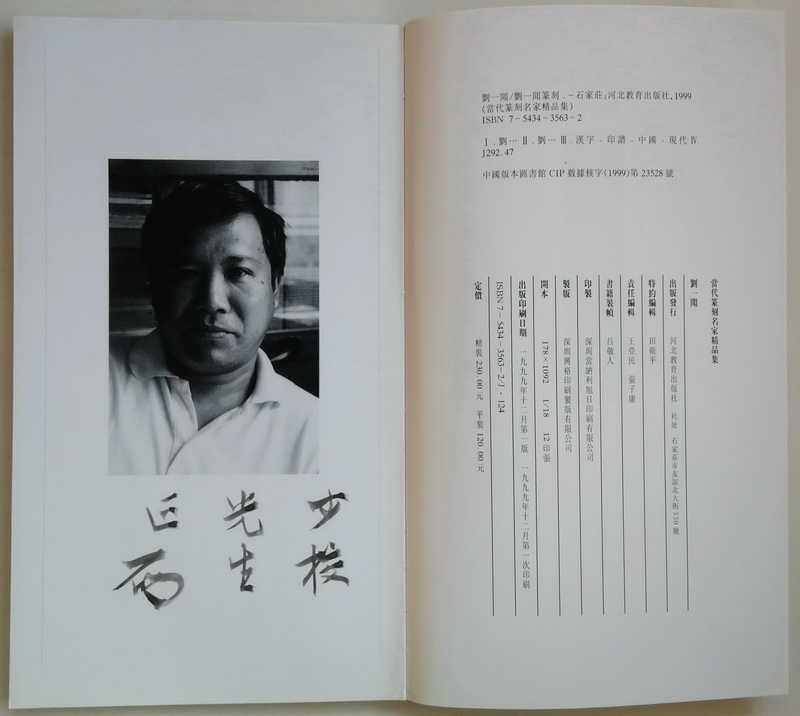 少校
先生
正
劉一聞/劉一聞篆刻.-石家莊:河北教育出版社,1999
(當代篆刻名家精品集)
ISBN 7-5434-3563-2
Ⅰ.劉… Ⅱ.劉… Ⅲ.漢字-印譜-中國-現代 Ⅳ
J292.47
中國版本圖書館 CIP 數據核字(1999)第 23528 號
當代篆刻名家精品集
劉一聞
出版發行 河北教育出版社 社址 石家莊市友誼北大街330號
特約編輯 田衛平
責任編輯 王亞民 張子康
書籍裝幀 呂敬人
印製 深圳當納利旭日印刷有限公司
製版 深圳興裕印刷製版有限公司
開本 178×1092 1/18 12印張
出版印刷日期 一九九九年十二月第一版 一九九九年十二月第一次印刷
ISBN 7-5434-3563-2/J·124
定價 精裝 230.00元 平裝 120.00元